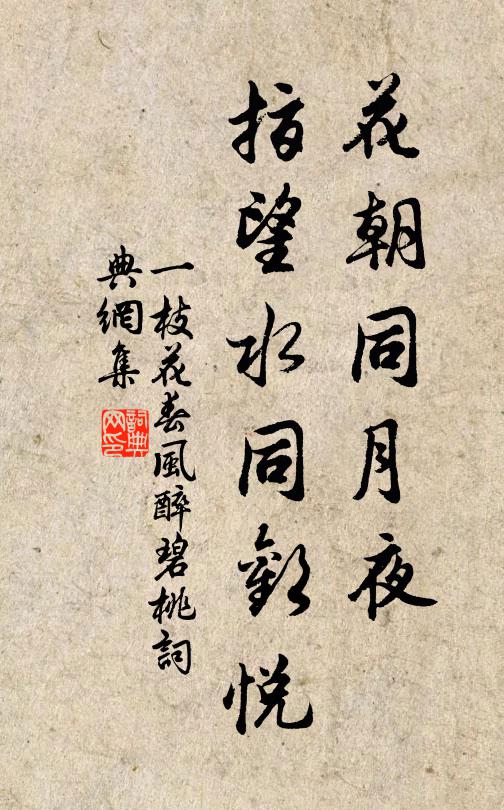 花朝同月夜
指望水同歡悅
一枝花春風醉碧桃詞
典網集
詞典網印